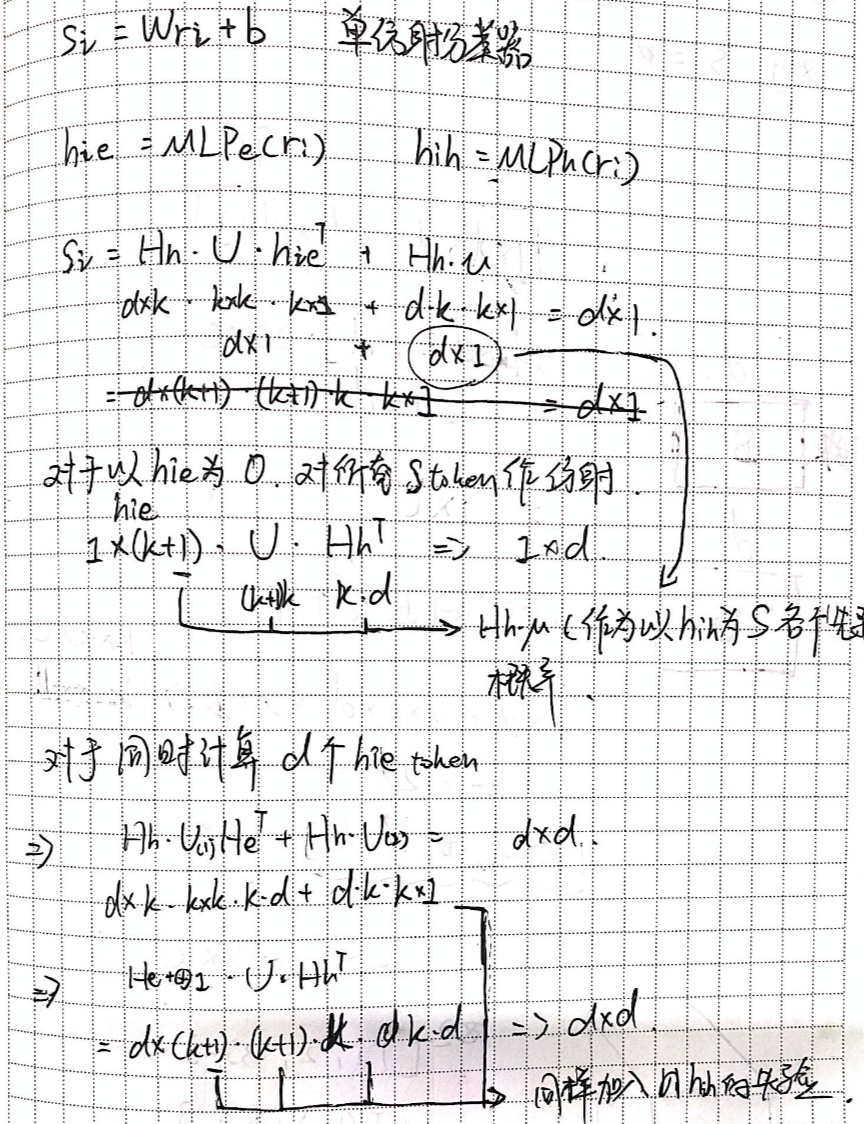 Si = Wri + b 单仿射分类器
hie = MLPe(ri) hih = MLPh(ri)
Si = Hh · U · hieᵀ + Hh · u
d×k · k×k · k×1 + d·k · k×1 = d×1.
d×1 + d×1
= d×(k+1) · (k+1)·k · k×1 = d×1
对于以 hie 为 0. 对所有 S token 作仿射.
hie
1×(k+1) · U · Hhᵀ => 1×d.
(k+1)k k·d
Hh·μ (作为以 hih 为 S 各个先验
概率.
对于同时计算 d个 hie token
=> Hh · U₍₁₎Heᵀ + Hh · U₍₂₎ = d×d.
d×k · k×k · k·d + d·k · k×1
=> He⊕1 · U · Hhᵀ
= d×(k+1) · (k+1)·k · k·d => d×d.
同样加入的 hih 的先验.